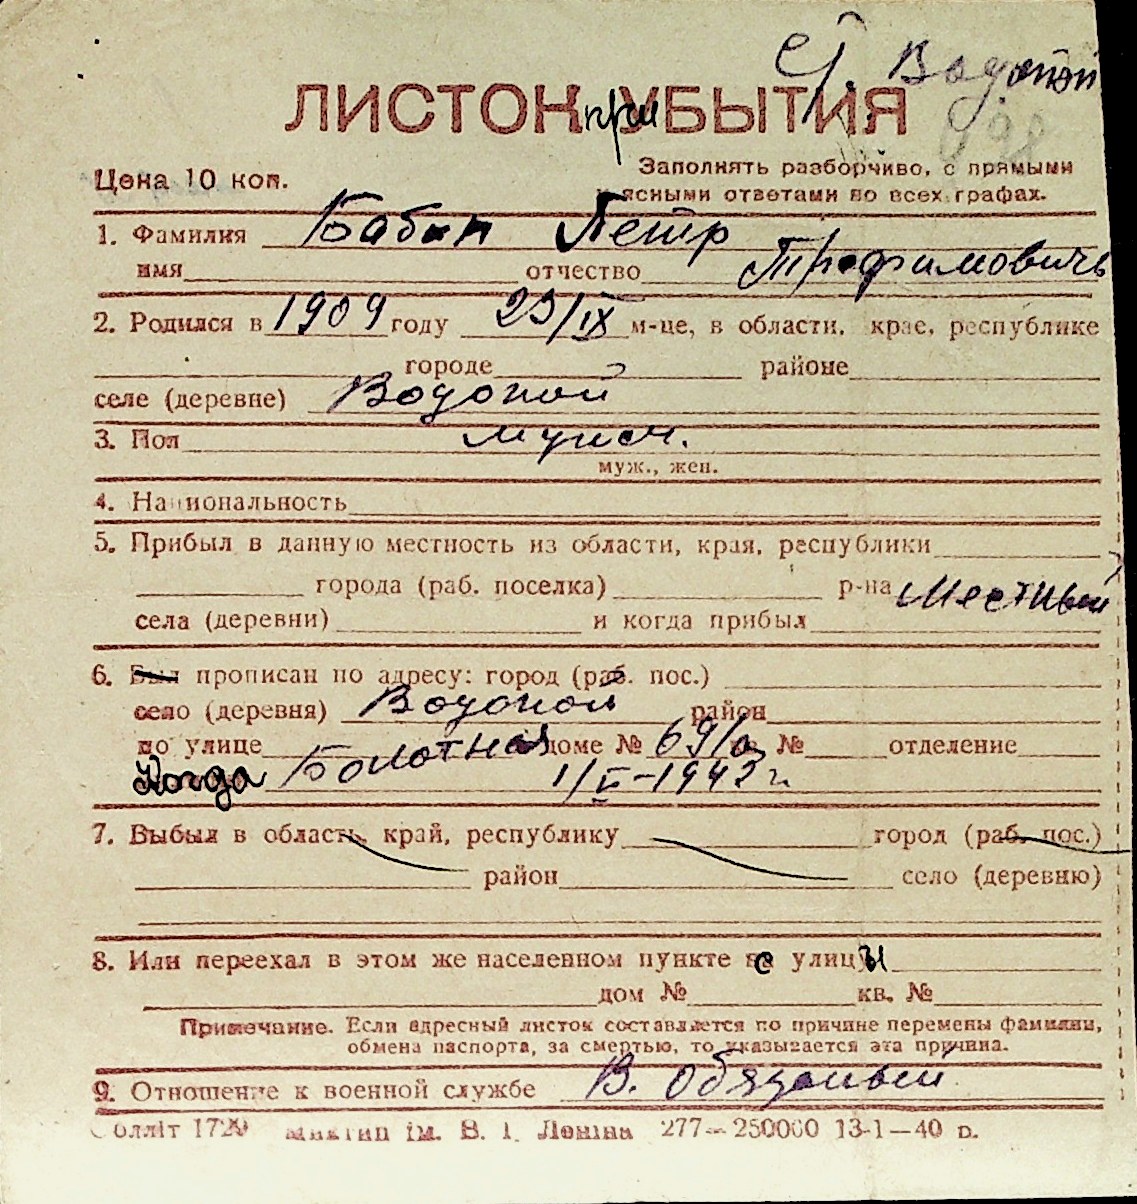 с. Водопой
ЛИСТОК при УБЫТИЯ
Цена 10 коп.
Заполнять разборчиво, с прямыми
и ясными ответами во всех графах.
1. Фамилия Бабин Петр
имя отчество Трофимовичь
2. Родился в 1909 году 23/IX м-це, в области, крае, республике
городе районе
селе (деревне) Водопой
3. Пол мужч.
муж., жен.
4. Национальность
5. Прибыл в данную местность из области, края, республики
города (раб. поселка) р-на Местный
села (деревни) и когда прибыл
6. Был прописан по адресу: город (раб. пос.)
село (деревня) Водопой район
по улице Болотная доме № 69/а № отделение
Когда 1/II-1942 г.
7. Выбыл в область, край, республику город (раб. пос.)
район село (деревню)
8. Или переехал в этом же населенном пункте с улицы
дом № кв. №
Примечание. Если адресный листок составляется по причине перемены фамилии,
обмена паспорта, за смертью, то указывается эта причина.
9. Отношение к военной службе В. обязаный
Облліт 1729 ім. В. І. Леніна 277—250000 13-1—40 р.